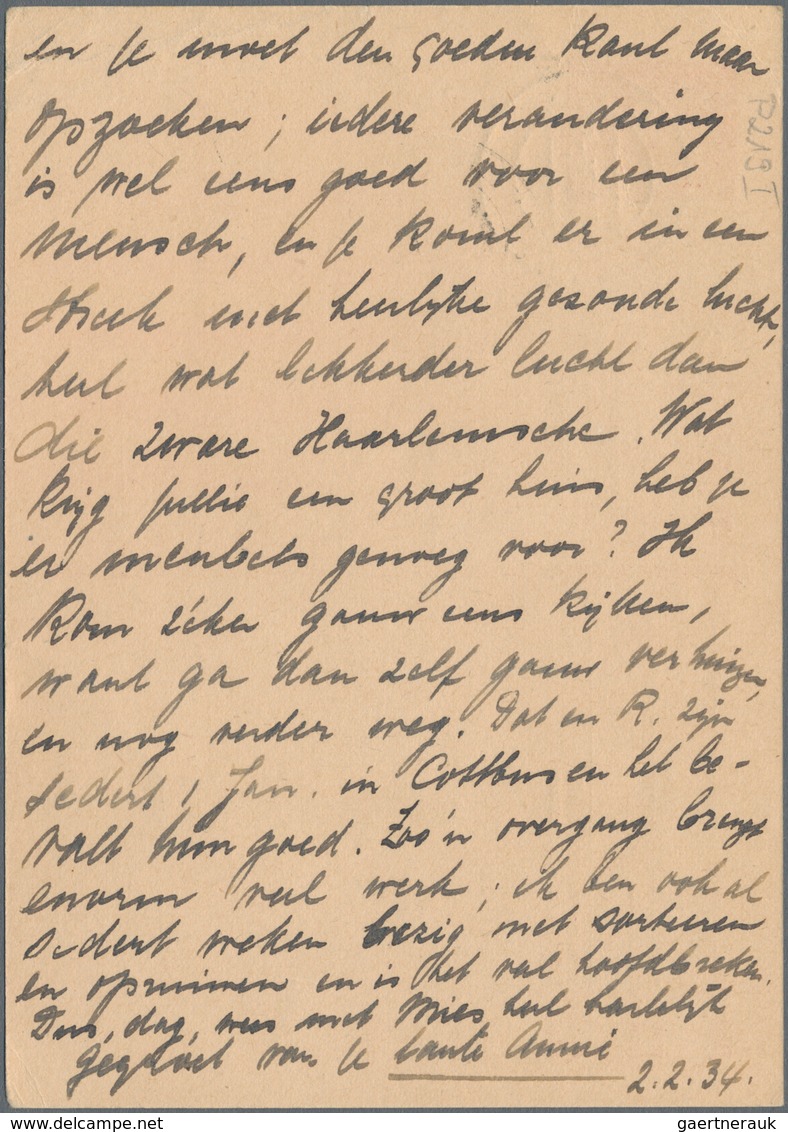 en je moet den goeden kant maar
opzoeken; iedere verandering
is wel eens goed voor een
mensch, en je komt er in een
streek met heerlijke gezonde lucht,
heel wat lekkerder lucht dan
die zware Haarlemsche. Wat
krijg jullie een groot huis, heb je
er meubels genoeg voor? Ik
kom zéker gauw eens kijken,
want ga dan zelf gauw verhuizen,
en nog verder weg. Dat en R. zijn
sedert 1 Jan. in Cottbus en het be-
valt hun goed. Zoo'n overgang brengt
enorm veel werk; ik ben ook al
sedert weken bezig met sorteeren
en opruimen en is het veel hoofdbreken.
Dus, dag, wees met Mies heel hartelijk
gegroet van je tante Annie
2.2.34.
P219 I
gaertnerauk